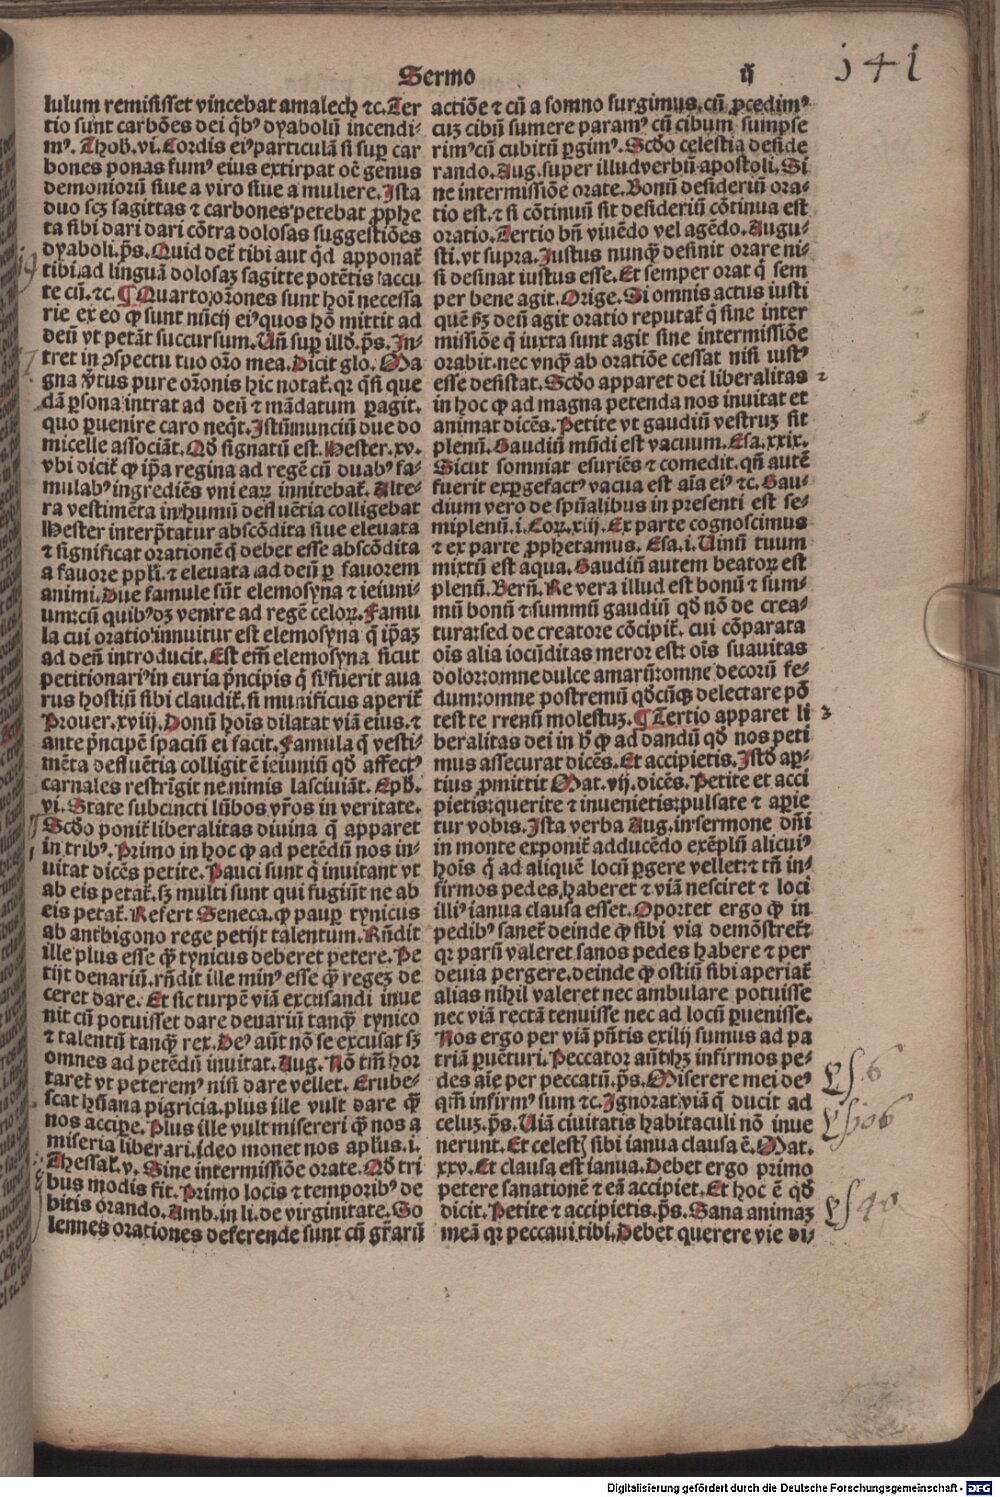 Sermo ij
141
lulum remisisset vincebat amalech ⁊c. Ter
tio sunt carbōes dei q̄bꝰ dyabolū incendi⸗
mꝰ. Thob. vi. Cordis eiꝰ particulā si suꝑ car
bones ponas fumꝰ eius extirpat oē genus
demoniorū siue a viro siue a muliere. Ista
duo scꝫ sagittas ⁊ carbones petebat ꝓphe
ta sibi dari dari cōtra dolosas suggestiōes
dyaboli. p̄s. Quid det̄ tibi aut qd̄ apponat̄
tibi ad linguā dolosaꝫ sagitte potētis accu
te cū. ⁊c. ¶ Quarto or̄ones sunt hoī necessa
rie ex eo ꝙ sunt nūcij eiꝰ quos hō mittit ad
deū vt petāt succursum. Vn̄ suꝑ illd̄. p̄s. In⸗
tret in ↄspectu tuo or̄o mea. Dicit glo. Ma
gna v̄tus pure or̄onis hic notat̄. qꝛ q̄si que
dā ꝑsona intrat ad deū ⁊ mādatum ꝑagit.
quo ꝑuenire caro neq̄t. Istū nunciū due do
micelle associāt. Qd̄ signatū est. Hester. xv.
vbi dicit̄ ꝙ ip̄a regina ad regē cū duabꝰ fa⸗
mulabꝰ ingrediēs vni eaꝝ innitebat̄. Alte⸗
ra vestimēta in humū defluētia colligebat
Hester interp̄tatur abscōdita siue eleuata
⁊ significat orationē q̄ debet esse abscōdita
a fauore ppl̄i. ⁊ eleuata ad deū ꝑ fauorem
animi. Due famule sūt elemosyna ⁊ ieiuni⸗
um: cū quibꝰ dꝫ venire ad regē celoꝝ. Famu
la cui oratio innuitur est elemosyna q̄ ip̄aꝫ
ad deū introducit. Est em̄ elemosyna sicut
petitionariꝰ in curia p̄ncipis q̄ si fuerit aua
rus hostiū sibi claudit̄. si munificus aperit̄
Prouer. xviij. Donū hoīs dilatat viā eius. ⁊
ante p̄ncipē spaciū ei facit. Famula q̄ vesti⸗
mēta defluētia colligit ē ieiuniū qd̄ affectꝰ
carnales restrīgit ne nimis lasciuiāt. Eph̄.
vi. State subcincti lūbos vr̄os in veritate.
Scd̄o ponit̄ liberalitas diuina q̄ apparet
in tribꝰ. Primo in hoc ꝙ ad petēdū nos in⸗
uitat dicēs petite. Pauci sunt q̄ inuitant vt
ab eis petat̄. sꝫ multi sunt qui fugiūt ne ab
eis petat̄. Refert Seneca. ꝙ pauꝑ tynicus
ab anthigono rege petijt talentum. Rn̄dit
ille plus esse ꝙ̄ tynicus deberet petere. Pe
tijt denariū. rn̄dit ille minꝰ esse ꝙ̄ regeꝫ de
ceret dare. Et sic turpē viā excusandi inue
nit cū potuisset dare denariū tanꝙ̄ tynico
⁊ talentū tanꝙ̄ rex. Deꝰ aūt nō se excusat sꝫ
omnes ad petēdū inuitat. Aug. Nō tm̄ hor
taret̄ vt peteremꝰ nisi dare vellet. Erube⸗
scat hūana pigricia. plus ille vult dare ꝙ̄
nos accipe. Plus ille vult misereri ꝙ̄ nos a
miseria liberari. ideo monet nos apl̄us. i.
Thessal̄. v. Sine intermissiōe orate. Qd̄ tri
bus modis fit. Primo locis ⁊ temporibꝰ de
bitis orando. Amb. in li. de virginitate. So
lennes orationes deferende sunt cū gr̄arū
actiōe ⁊ cū a somno surgimus. cū ꝓcedimꝰ
cuꝫ cibū sumere paramꝰ cū cibum sumpse
rimꝰ cū cubitū ꝑgimꝰ. Scd̄o celestia deside
rando. Aug. super illud verbū apostoli. Si
ne intermissiōe orate. Bonū desideriū ora⸗
tio est. ⁊ si cōtinuū sit desideriū cōtinua est
oratio. Tertio bn̄ viuēdo vel agēdo. Augu⸗
sti. vt supra. Justus nunꝙ̄ desinit orare ni⸗
si desinat iustus esse. Et semper orat q̄ sem
per bene agit. Orige. Si omnis actus iusti
quē sꝫ deū agit oratio reputat̄ q̄ sine inter
missiōe q̄ iuxta sunt agit sine intermissiōe
orabit. nec vnꝙ̄ ab oratiōe cessat nisi iustꝰ
esse desistat. Scd̄o apparet dei liberalitas 2
in hoc ꝙ ad magna petenda nos inuitat et
animat dicēs. Petite vt gaudiū vestruꝫ sit
plenū. Gaudiū mūdi est vacuum. Esa. xxix.
Sicut somniat esuriēs ⁊ comedit. qn̄ autē
fuerit exꝑgefactꝰ vacua est aīa eiꝰ ⁊c. Gau⸗
dium vero de spūalibus in presenti est se⸗
miplenū. i. Coꝝ. xiij. Ex parte cognoscimus
⁊ ex parte ꝓphetamus. Esa. i. Uinū tuum
mixtū est aqua. Gaudiū autem beatoꝝ est
plenū. Bern̄. Re vera illud est bonū ⁊ sum⸗
mū bonū ⁊ summū gaudiū qd̄ nō de crea⸗
tura: sed de creatore cōcipit̄. cui cōparata
oīs alia iocūditas meror est: oīs suauitas
dolor: omne dulce amarū: omne decorū fe⸗
dum: omne postremū qd̄cūqꝫ delectare pō
test te rrensū molestuꝫ. ¶ Tertio apparet li 3
beralitas dei in h̄ ꝙ ad dandū qd̄ nos peti
mus assecurat dicēs. Et accipietis. Istd̄ aꝑ⸗
tius ꝓmittit Mat. vij. dicēs. Petite et acci
pietis: querite ⁊ inuenietis: pulsate ⁊ aꝑie
tur vobis. Ista verba Aug. in sermone dn̄i
in monte exponit̄ adducēdo exēplū alicuiꝰ
hoīs q̄ ad aliquē locū ꝑgere vellet: ⁊ tn̄ in⸗
firmos pedes haberet ⁊ viā nesciret ⁊ loci
illiꝰ ianua clausa esset. Oportet ergo ꝙ in
pedibꝰ sanet̄ deinde ꝙ sibi via demōstret̄:
qꝛ parū valeret sanos pedes habere ⁊ per
deuia pergere. deinde ꝙ ostiū sibi aperiat̄
alias nihil valeret nec ambulare potuisse
nec viā rectā tenuisse nec ad locū ꝑuenisse.
Nos ergo per viā pn̄tis exilij sumus ad pa
triā ꝑuēturi. Peccatoꝝ aūt hꝫ infirmos pe⸗
des aīe per peccatū. p̄s. Miserere mei deꝰ
qm̄ infirmꝰ sum ⁊c. Ignorat viā q̄ ducit ad
celuꝫ. p̄s. Uiā ciuitatis habitaculi nō inue
nerunt. Et celestꝭ sibi ianua clausa ē. Mat.
xxv. Et clausa est ianua. Debet ergo primo
petere sanationē ⁊ eā accipiet. Et hoc ē qd̄
dicit. Petite ⁊ accipietis. p̄s. Sana animaꝫ
meā qꝛ peccaui tibi. Debet querere vie di⸗
ps 6
ps 106
ps 40
Digitalisierung gefördert durch die Deutsche Forschungsgemeinschaft - DFG